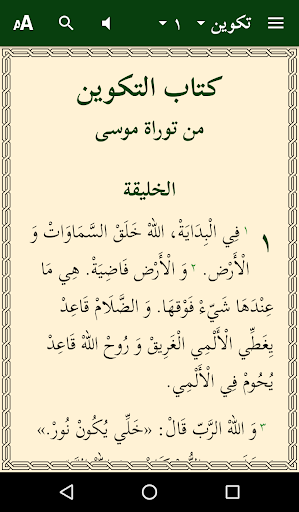 تكوين ١
AA
كتاب التكوين
من توراة موسى
الخليقة
١ ١ فِي الْبِدَايَةْ، اللّٰهْ خَلَقْ السَّمَاوَاتْ وَ
الْأَرْض. ٢ وَ الْأَرْض فَاضِيَةْ. هِي مَا
عِنْدَهَا شَيّءْ فَوْقهَا. وَ الضَّلَامْ قَاعِدْ
يَغَطِّي الْأَلْمِي الْغَرِيقْ وَ رُوحْ اللّٰهْ قَاعِدْ
يُحُومْ فِي الْأَلْمِي.
٣ وَ اللّٰهْ الرَّبّ قَالْ: «خَلِّي يُكُونْ نُورْ.»